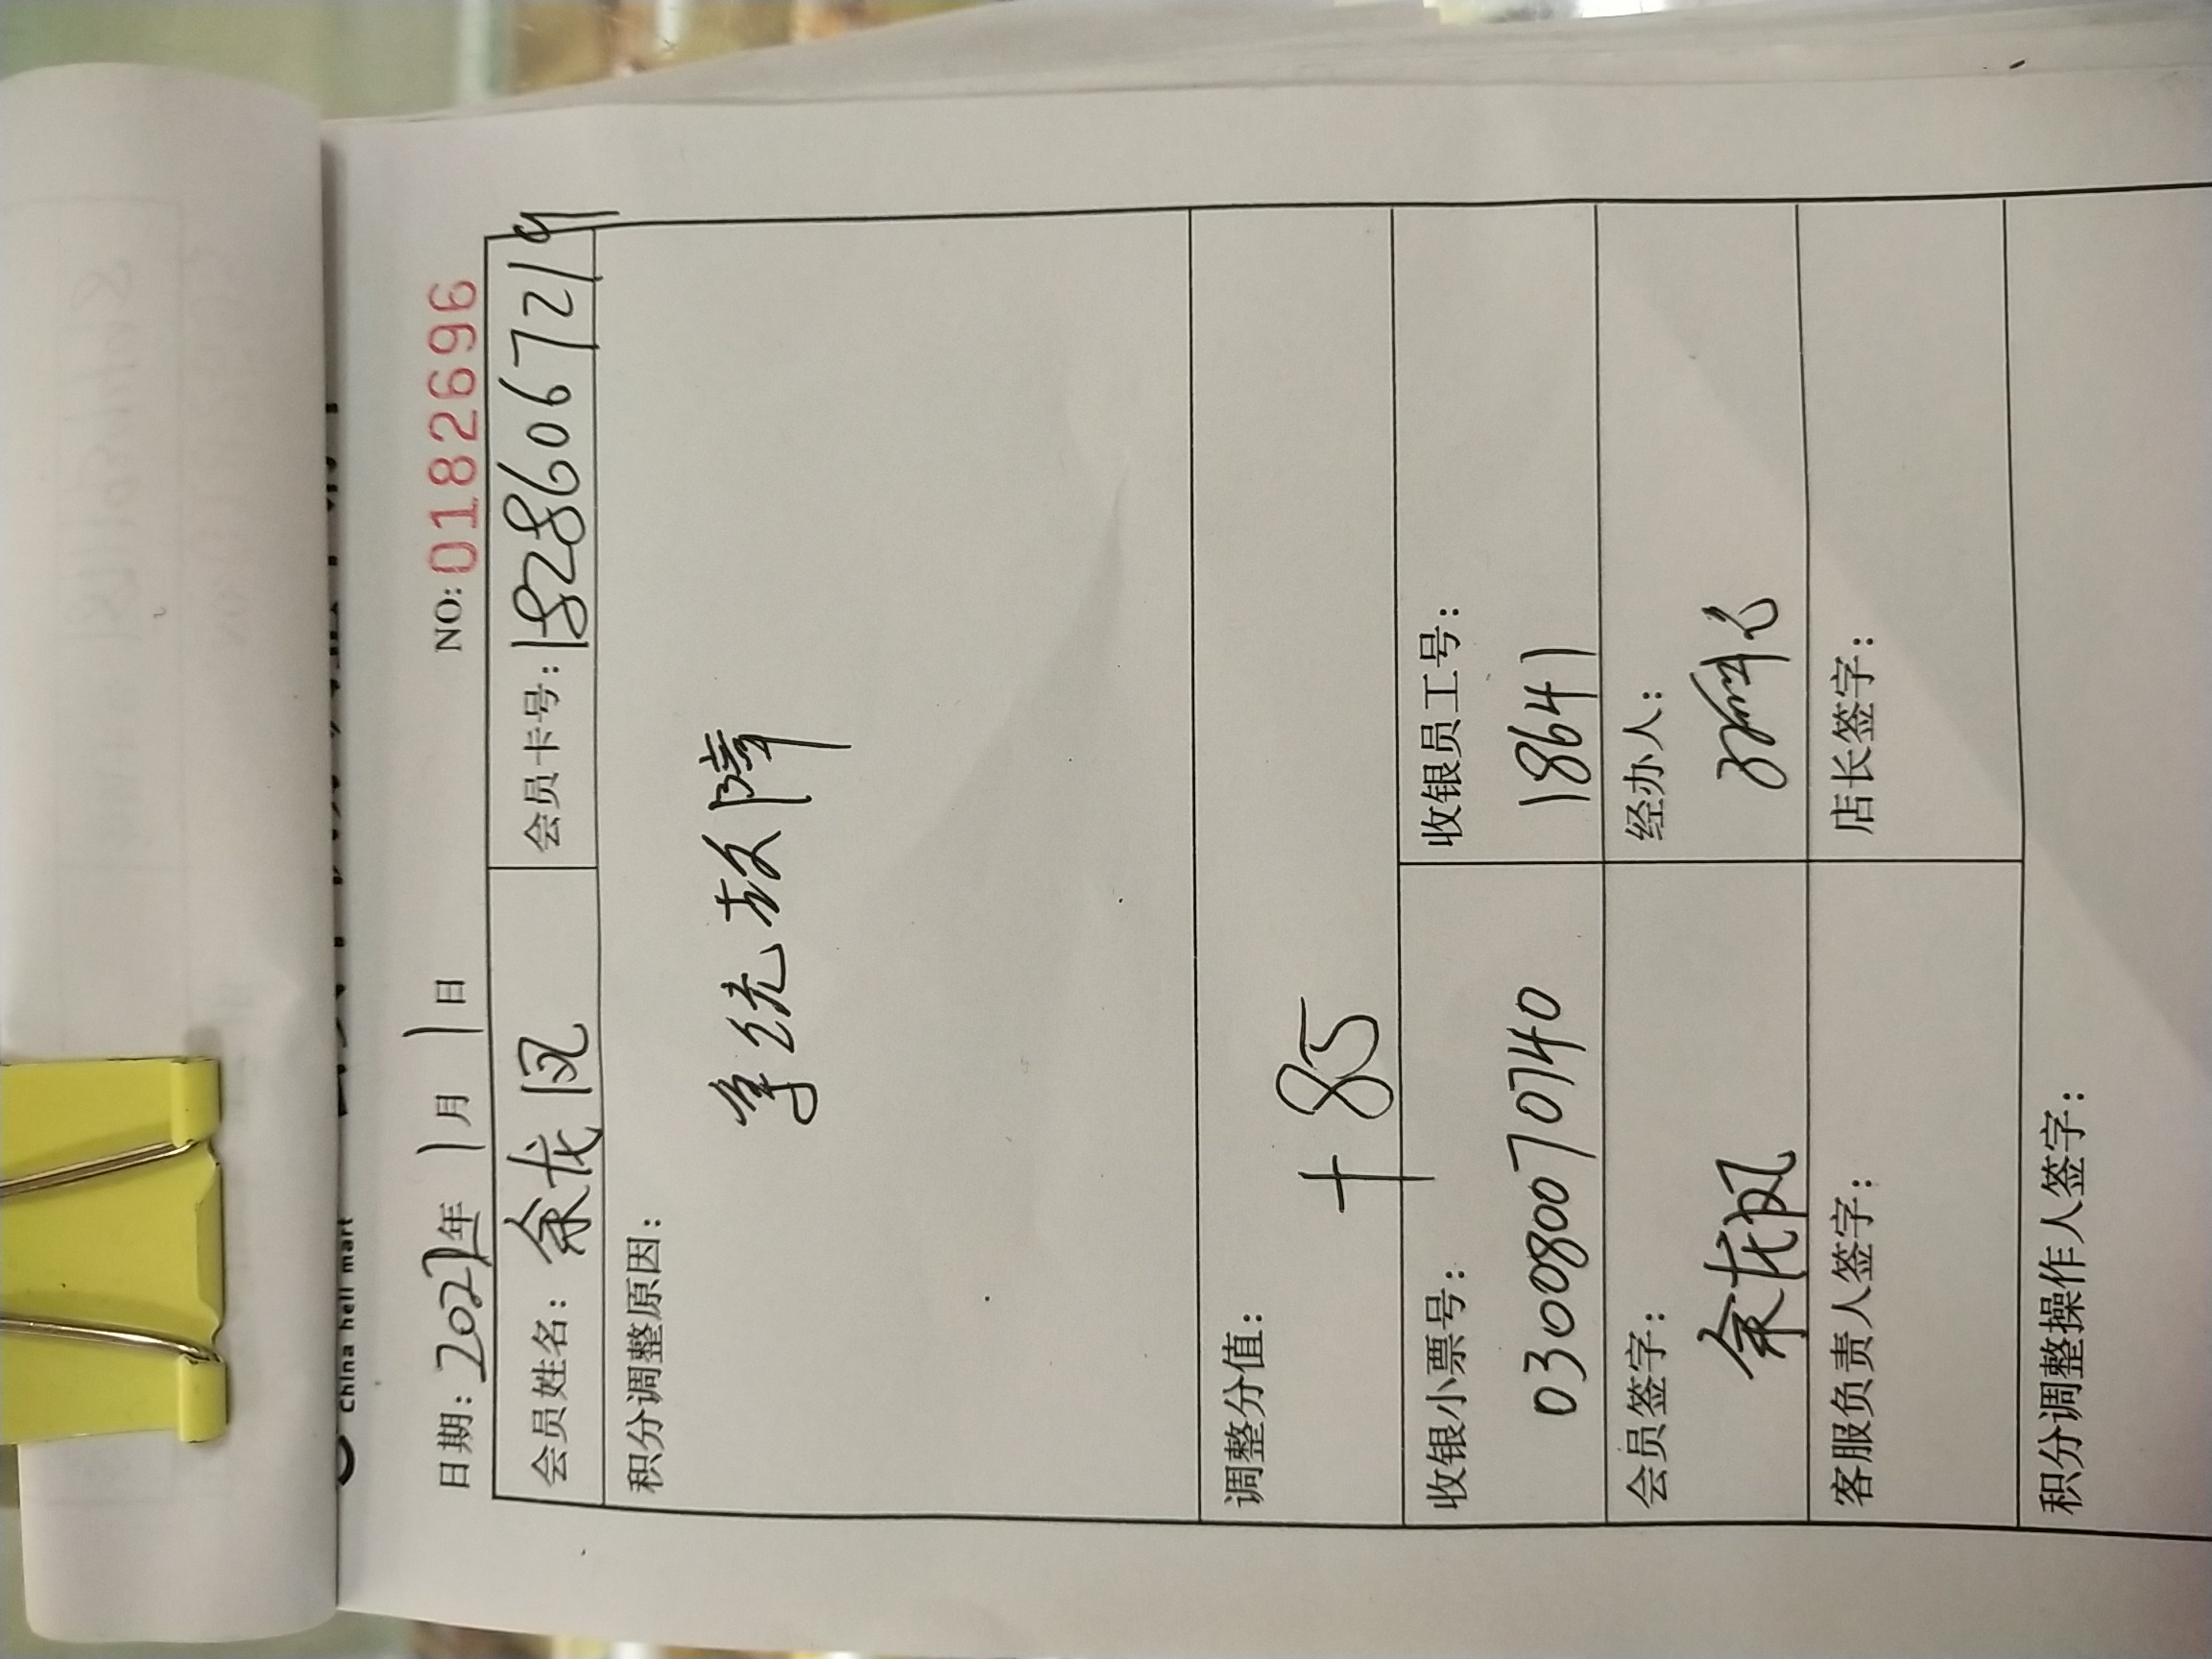 china hell mart
日期：2021年 1月 1日 NO：0182696
会员姓名：余龙凤 会员卡号：18286067219
积分调整原因：
系统故障
调整分值：
+85
收银小票号： 收银员工号：
03008007 0740 1864 1
会员签字： 经办人：
余龙凤
客服负责人签字： 店长签字：
积分调整操作人签字：